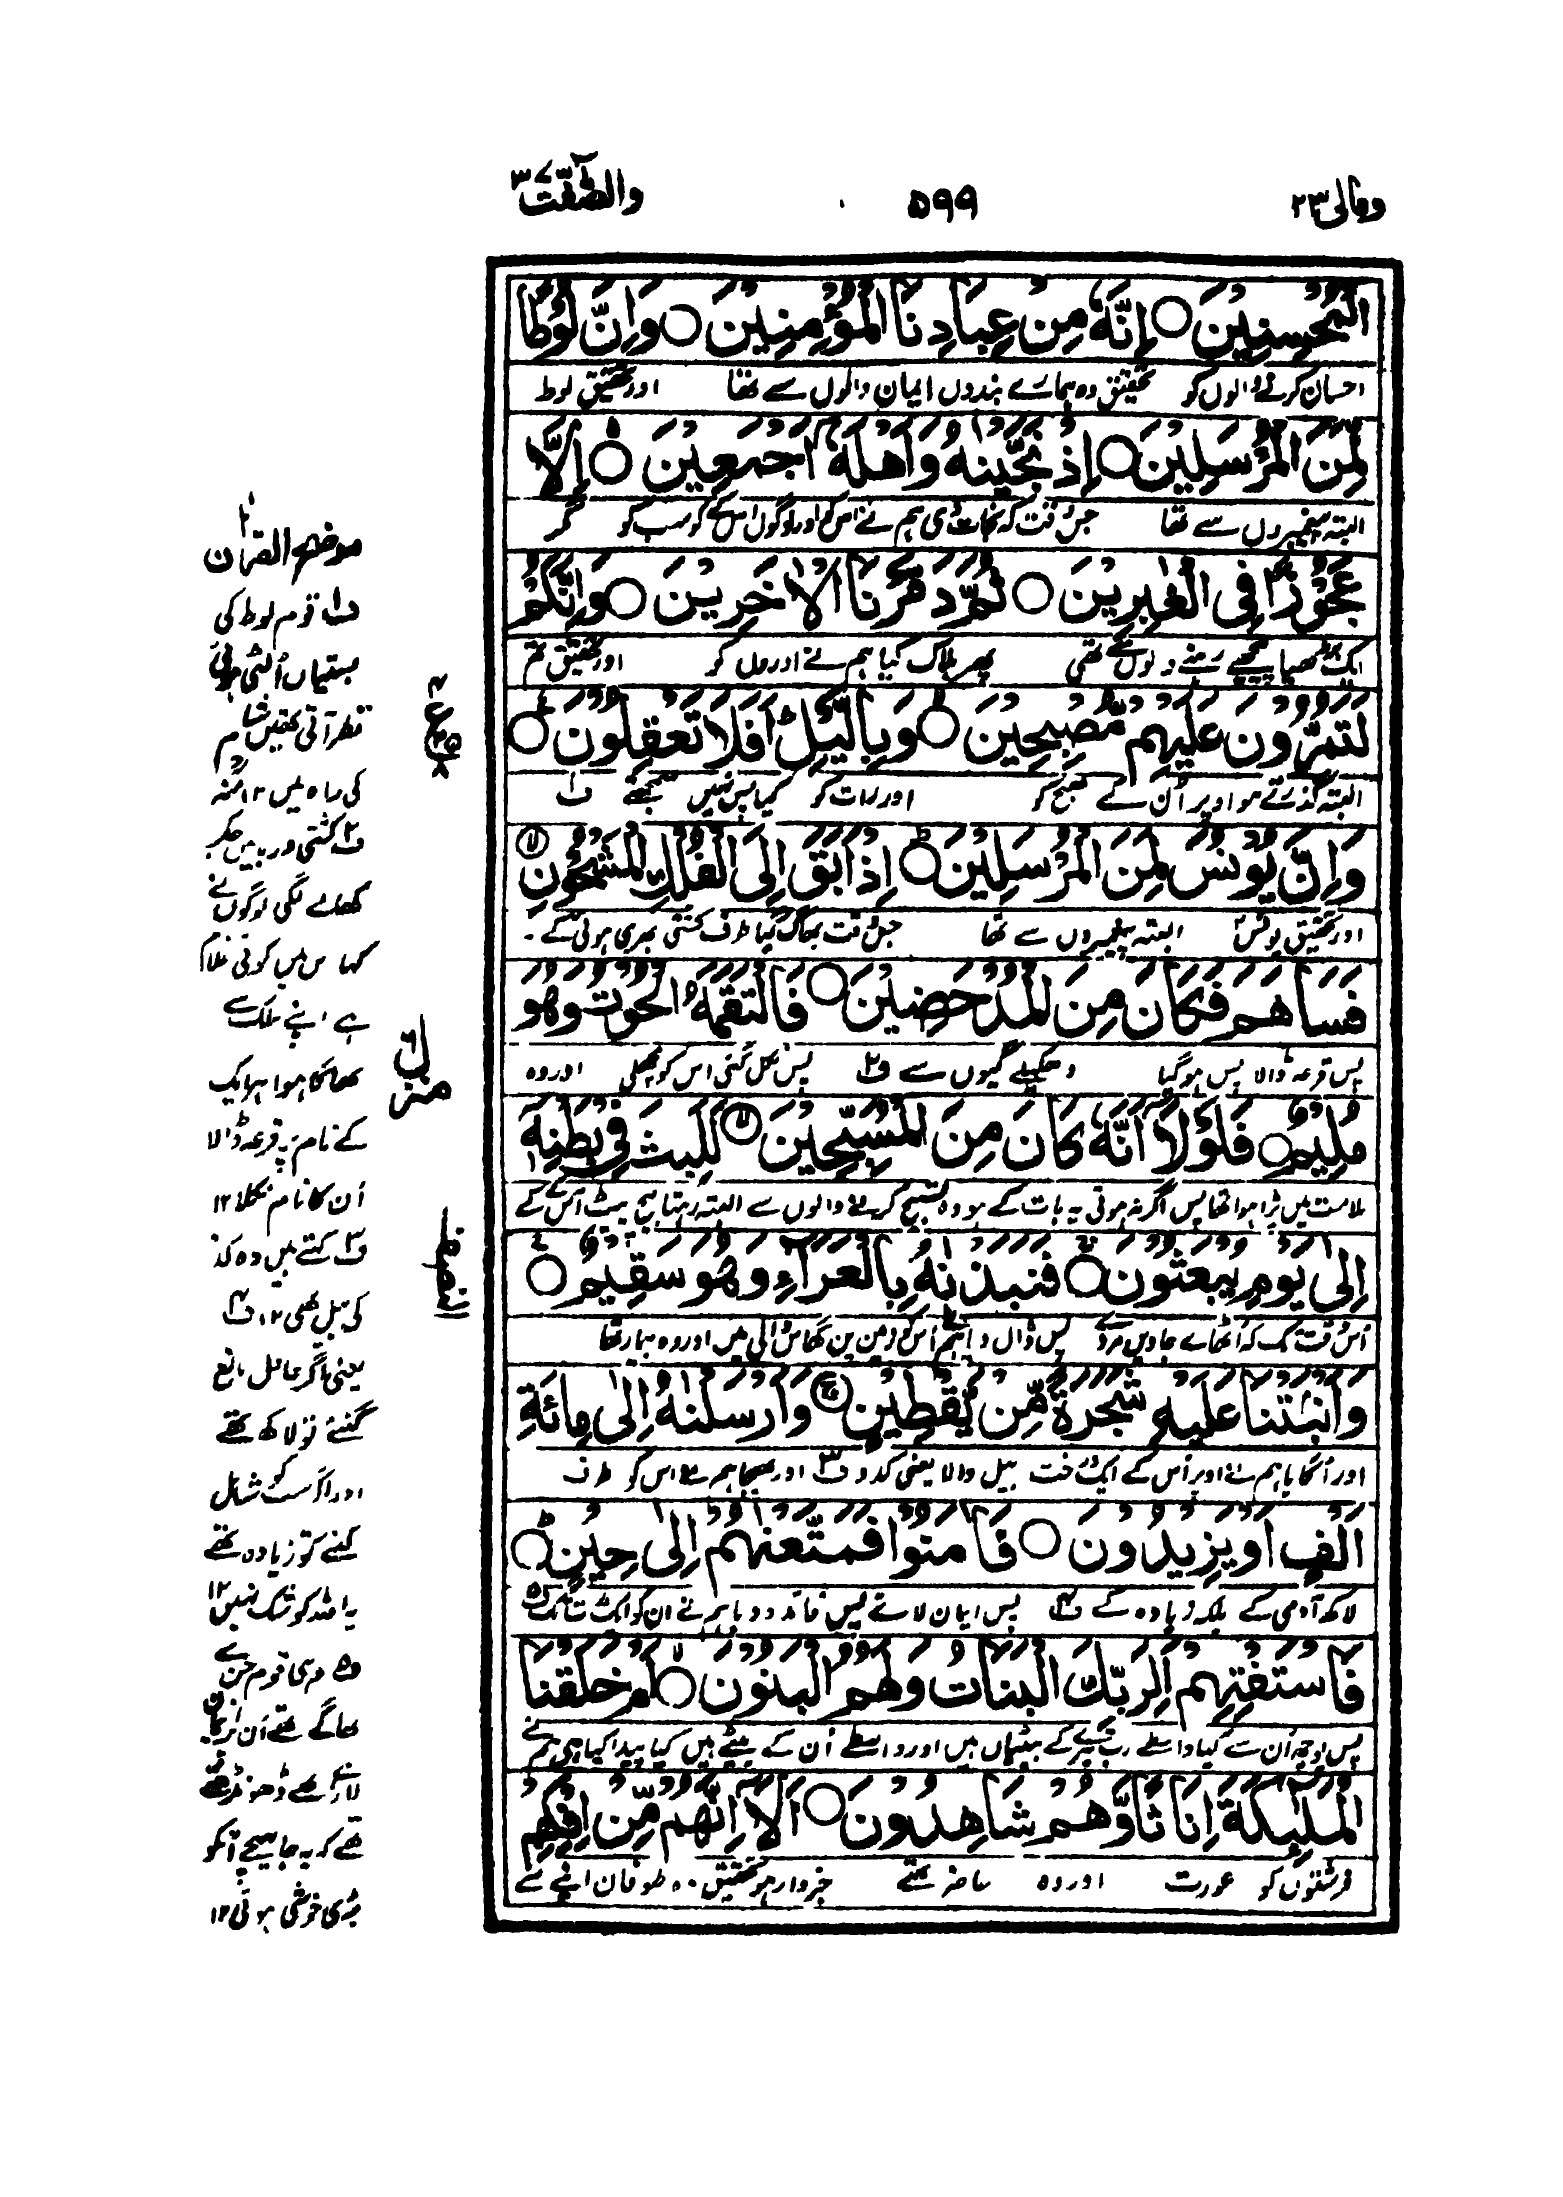 ومالی ۲۳
۵۹۹
والصّٰٓفّٰت ۳۷
الْمُحْسِنِیْنَ ○ اِنَّهٗ مِنْ عِبَادِنَا الْمُؤْمِنِیْنَ ○ وَاِنَّ لُوْطًا
احسان کرنے والوں کو تحقیق وہ ہمارے بندوں ایمان والوں سے تھا اور تحقیق لوط
لَّمِنَ الْمُرْسَلِیْنَ ○ اِذْ نَجَّیْنٰهُ وَاَهْلَهٗۤ اَجْمَعِیْنَ ○ اِلَّا
البتہ پیغمبروں سے تھا جس وقت کہ نجات دی ہم نے اس کو اور لوگوں اس کے کو سب کو مگر
عَجُوْزًا فِی الْغٰبِرِیْنَ ○ ثُمَّ دَمَّرْنَا الْاٰخَرِیْنَ ○ وَاِنَّكُمْ
ایک بڑھیا پیچھے رہنے والوں کے تھی پھر ہلاک کیا ہم نے اوروں کو اور تحقیق تم
لَتَمُرُّوْنَ عَلَیْهِمْ مُّصْبِحِیْنَ ○ وَبِالَّیْلِ ؕ اَفَلَا تَعْقِلُوْنَ ○
البتہ گذرتے ہو اوپر اُن کے صبح کو اور رات کو کیا پس نہیں سمجھتے ف۱
وَاِنَّ یُوْنُسَ لَمِنَ الْمُرْسَلِیْنَ ○ اِذْ اَبَقَ اِلَی الْفُلْكِ الْمَشْحُوْنِ ○
اور تحقیق یونس البتہ پیغمبروں سے تھا جس وقت بھاگ گیا طرف کشتی بھری ہوئی کے
فَسَاهَمَ فَكَانَ مِنَ الْمُدْحَضِیْنَ ○ فَالْتَقَمَهُ الْحُوْتُ وَهُوَ
پس قرعہ ڈالا پس ہوگیا دھکیلے گیوں سے ف۲ پس نگل گئی اس کو مچھلی اور وہ
مُلِیْمٌ ○ فَلَوْلَاۤ اَنَّهٗ كَانَ مِنَ الْمُسَبِّحِیْنَ ○ لَلَبِثَ فِیْ بَطْنِهٖۤ
ملامت میں پڑا ہوا تھا پس اگر نہ ہوتی یہ بات کے ہو وہ تسبیح کرنے والوں سے البتہ رہتا بیچ پیٹ اُس کے کے
اِلٰی یَوْمِ یُبْعَثُوْنَ ○ فَنَبَذْنٰهُ بِالْعَرَآءِ وَهُوَ سَقِیْمٌ ○
اُس وقت تک کہ اُٹھائے جاویں مردے پس ڈال دیا ہم اُس کو زمین بن گھاس والی میں اور وہ بیمار تھا
وَاَنْۢبَتْنَا عَلَیْهِ شَجَرَةً مِّنْ یَّقْطِیْنٍ ○ وَاَرْسَلْنٰهُ اِلٰی مِائَةِ
اور اُگایا ہم نے اوپر اُس کے ایک درخت بیل والا یعنی کدو ف۳ اور بھیجا ہم نے اس کو طرف
اَلْفٍ اَوْ یَزِیْدُوْنَ ○ فَاٰمَنُوْا فَمَتَّعْنٰهُمْ اِلٰی حِیْنٍ ○
لاکھ آدمی کے بلکہ زیادہ کے ف۴ پس ایمان لائے پس فائدہ دیا ہم نے ان کو ایک مدت تک ف۵
فَاسْتَفْتِهِمْ اَلِرَبِّكَ الْبَنَاتُ وَلَهُمُ الْبَنُوْنَ ○ اَمْ خَلَقْنَا
پس پوچھ اُن سے کیا واسطے رب تیرے کے بیٹیاں ہیں اور واسطے اُن کے بیٹے ہیں کیا پیدا کیا ہے ہم نے
الْمَلٰٓئِكَةَ اِنَاثًا وَّهُمْ شَاهِدُوْنَ ○ اَلَاۤ اِنَّهُمْ مِّنْ اِفْكِهِمْ
فرشتوں کو عورت اور وہ حاضر تھے خبردار ہو تحقیق وہ طوفان اپنے سے
موضح القرآن
ف۱ قوم لوط کی
بستیاں اُلٹی ہوئی
نظر آتی تھیں شام
کی راہ میں ۱۲ منہ
ف۲ کشتی دریا میں چکر
کھانے لگی لوگوں نے
کہا اس میں کوئی غلام
ہے اپنے مالک سے
بھاگا ہوا ہر ایک
کے نام پہ قرعہ ڈالا
اُن کا نام نکلا ۱۲
ف۳ کہتے ہیں وہ کدو
کی بیل تھی ۱۲ ف۴
یعنی اگر عاقل بالغ
گنئے تو لاکھ تھے
اور اگر سب شامل
گنئے تو زیادہ تھے
یا اللہ کو شک نہیں ۱۲
ف۵ وہی قوم جن سے
بھاگے تھے اُن پر ایمان
لارہے تھے ڈھونڈھتے
تھے کہ یہ جا پہنچے اُنکو
بڑی خوشی ہوئی ۱۲
منزل ۶
النصف